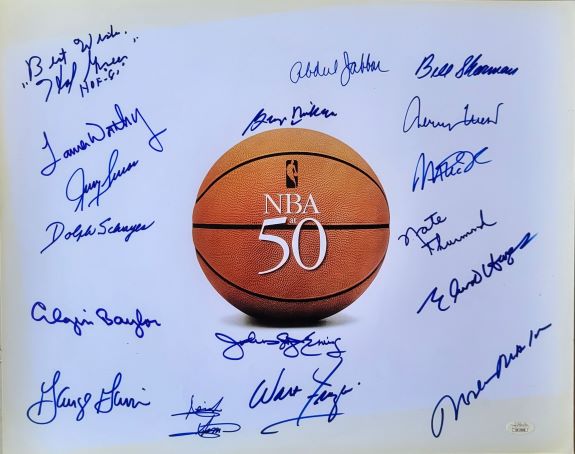 "Best Wishes"
HOF-91
Abdul Jabbar
Bill Sharman
George Mikan
James Worthy
Jerry West
Jerry Lucas
Magic J
Dolph Schayes
Nate
Thurmond
NBA
at
50
Elvin Hayes
Elgin Baylor
Julius Erving
George Gervin
Walt Frazier
Moses Malone